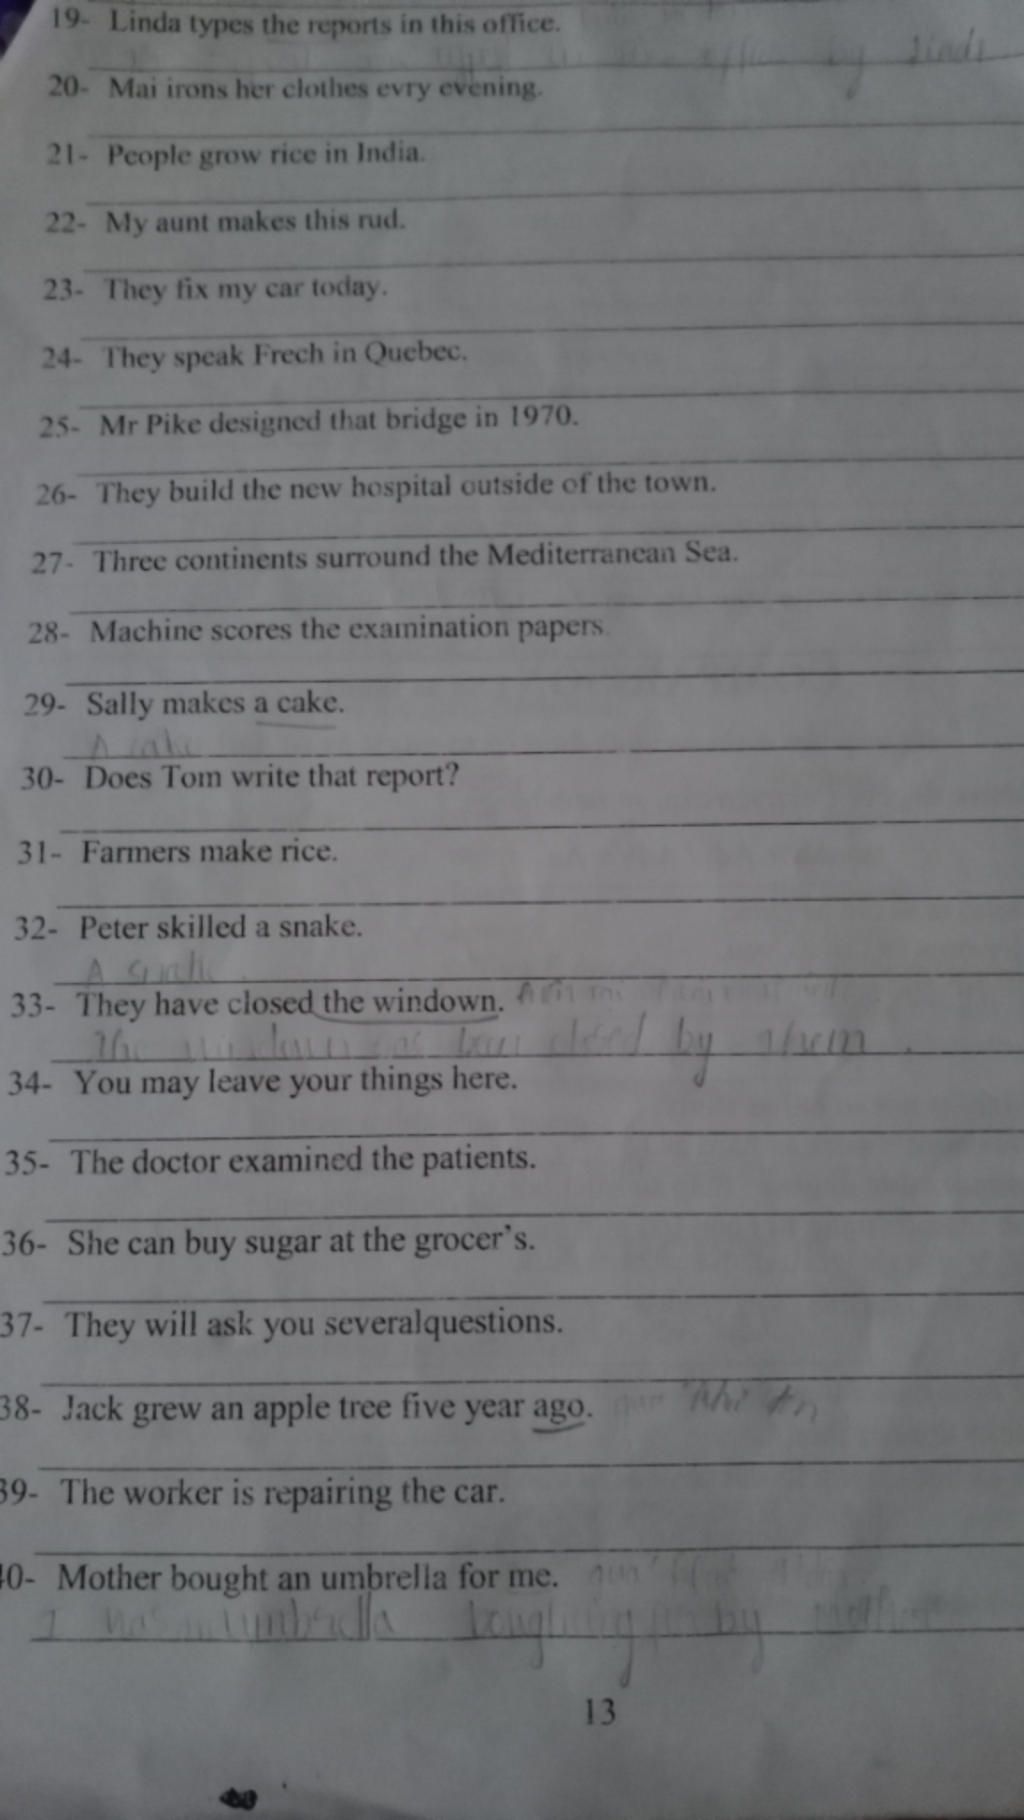 19- Linda types the reports in this office.
by Linda
20- Mai irons her clothes evry evening.
21- People grow rice in India.
22- My aunt makes this rud.
23- They fix my car today.
24- They speak Frech in Quebec.
25- Mr Pike designed that bridge in 1970.
26- They build the new hospital outside of the town.
27- Three continents surround the Mediterranean Sea.
28- Machine scores the examination papers.
29- Sally makes a cake.
A cake
30- Does Tom write that report?
31- Farmers make rice.
32- Peter skilled a snake.
A snake
33- They have closed the windown.
The windown has been closed by them.
34- You may leave your things here.
35- The doctor examined the patients.
36- She can buy sugar at the grocer's.
37- They will ask you severalquestions.
38- Jack grew an apple tree five year ago.
39- The worker is repairing the car.
40- Mother bought an umbrella for me.
I umbrella by mother
13